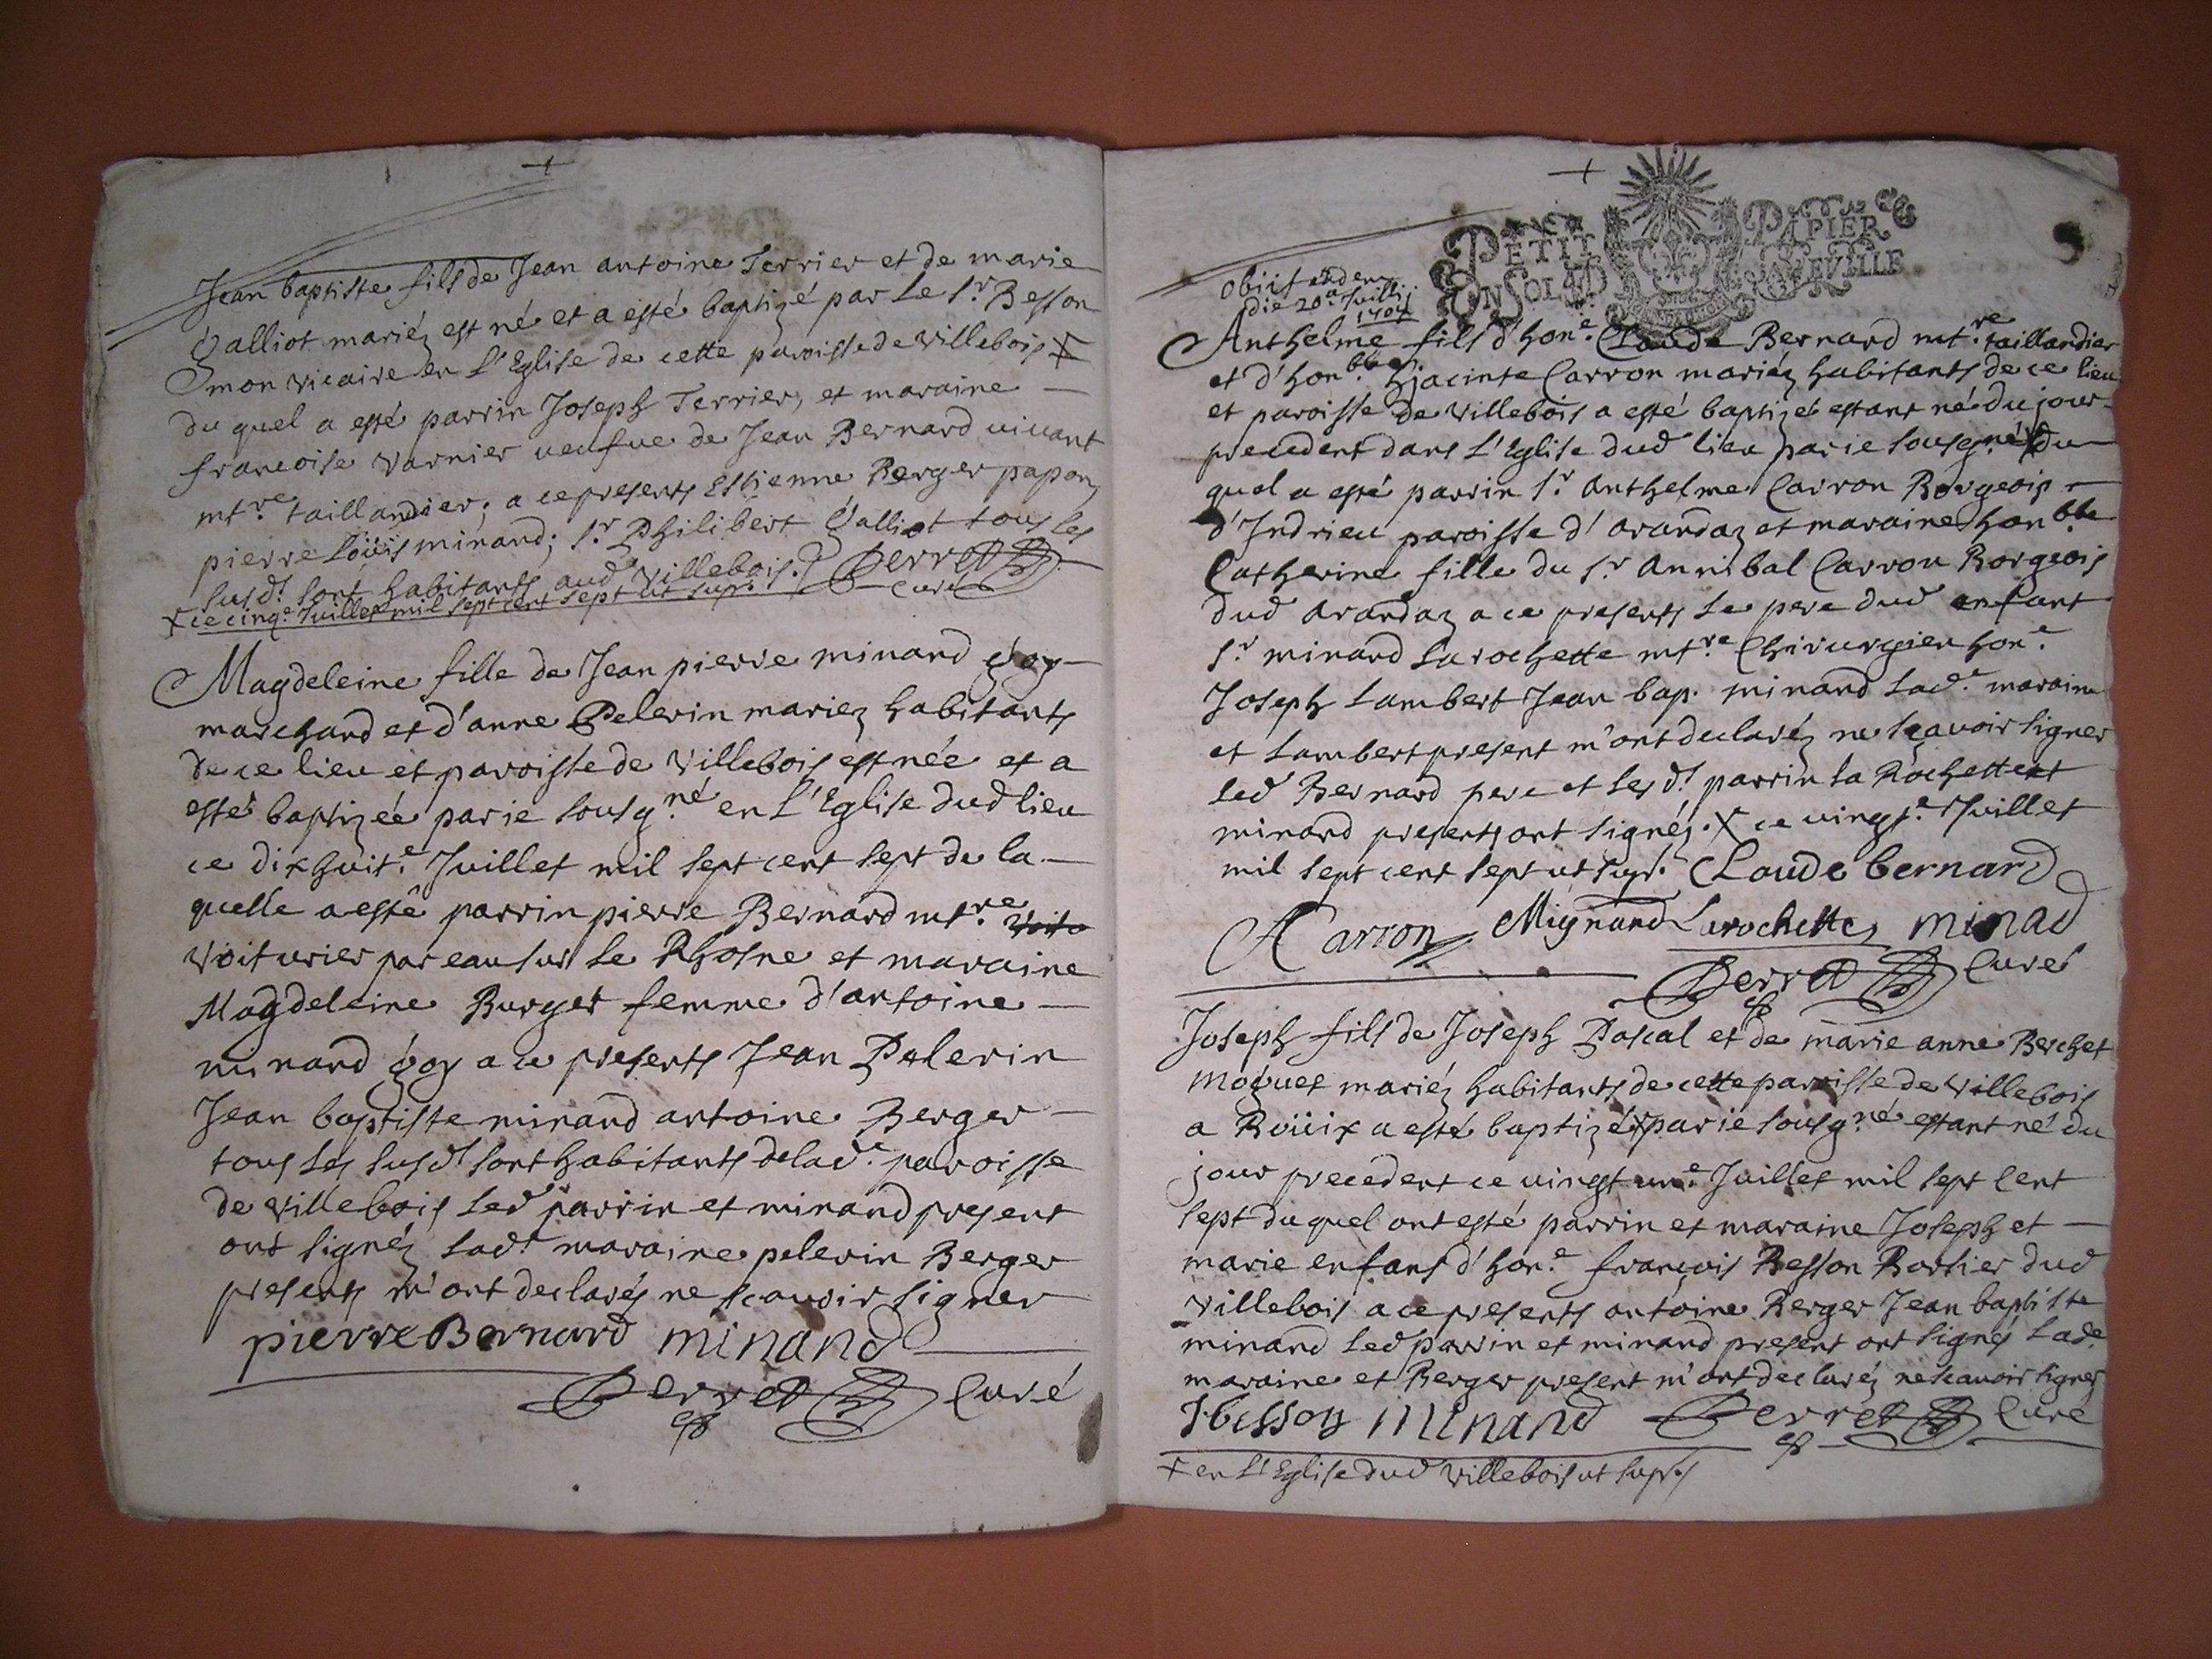 Jean baptiste fils de Jean antoine Terrier et de marie
Galliot mariéz est né et a esté baptizé par le Sr Besson
mon vicaire en L'Eglise de cette paroisse de villebois X
du quel a esté parrin Joseph Terrier, et maraine
francoise varnier veufue de Jean Bernard vivant
mtre taillandier; a ce presents Estienne Berger papon,
pierre Loüis minand; Sr Philibert Galliot tous les
susd. sont habitants aud villebois. Perret
X ce cinqe Juillet mil sept cent sept ut sup. Curé
Magdeleine fille de Jean pierre minand goy
marchand et d'anne Pelerin mariez habitants
de ce lieu et paroisse de villebois est née et a
esté baptizée par ie sousgné en L'Eglise dud lieu
ce dixhuite Juillet mil sept cent sept de la
quelle a esté parrin pierre Bernard mtre
voiturier par eau sur le Rhosne et maraine
Magdeleine Burget femme d'antoine
minand goy a ce presents Jean Pelerin
Jean baptiste minand antoine Berger
tous les susd. sont habitants de lade paroisse
de villebois led parrin et minand present
ont signéz lad. maraine pelerin Berger
presents m'ont declarés ne scavoir signer
pierre Bernard minand
Perret Curé
PETIT PAPIER
UN SOL LA FEUILLE
obiit eadem
die 20a Juilli
1707
Anthelme fils d'hone Claude Bernard mtre taillandier
et d'honble hjacinte Carron mariéz habitants de ce lieu
et paroisse de villebois a esté baptizé estant né du jour
precedent dans L'Eglise dud lieu par ie sousgné X du
quel a esté parrin Sr Anthelme Carron Borgeois
d'Indrieu paroisse d'arandaz et maraine honble
Catherine fille du Sr Annibal Carron Borgeois
dud Arandaz a ce presents le pere dud enfant
Sr minand Larochette mtre Chirurgien hone
Joseph Lambert Jean bap. minand lade maraine
et Lambert present m'ont declaréz ne sçavoir signer
led Bernard pere et les d. parrin La Rochette et
minand presents ont signéz. X ce vingte Juillet
mil sept cent sept ut sup. Claude bernard
A Carron Mignand Larochette minad
Perret Curé
Joseph fils de Joseph Pascal et de marie anne Berchet
moguet mariéz habitants de cette paroisse de villebois
a Roüix a esté baptizé X par ie sousgné estant né du
jour precedent ce vingt une Juillet mil sept Cent
sept duquel ont esté parrin et maraine Joseph et
marie enfans d'hone françois Besson Rostier dud
villebois a ce presents antoine Berger Jean baptiste
minand led parrin et minand present ont signés lade
maraine et Berger present m'ont declaréz ne scavoir signer
J besson minand Perret Curé
X en L'Eglise dud villebois ut sup.